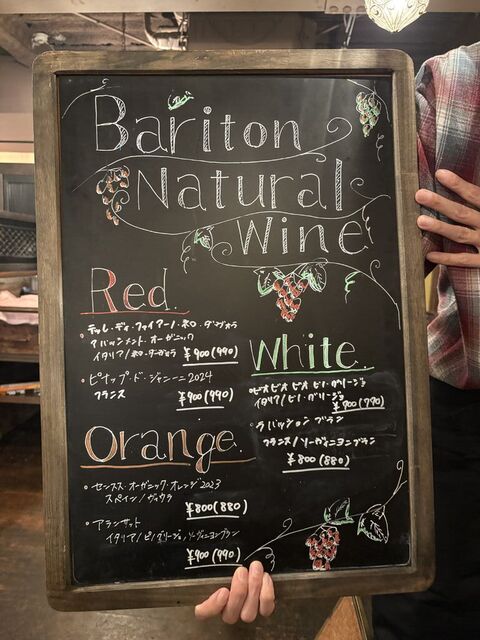 Bariton
Natural
Wine
Red.
テッレ・ディ・ファイアーノ・ネロ・ダヴォラ
アパッシメント・オーガニック
イタリア/ネロ・ダーヴォラ ¥900(990)
・ピナップ・ド・ジャンニーニ 2024
フランス ¥900(990)
White.
・ビオビオ ビオ ピノ・グリージョ
イタリア/ピノ・グリージョ
¥900(990)
・ラ パッション ブラン
フランス/ソーヴィニヨンブラン
¥800(880)
Orange.
・センスス・オーガニック・オレンジ 2023
スペイン/ヴィウラ
¥800(880)
・アランサット
イタリア/ピノグリージョ、ソーヴィニヨンブラン
¥900(990)